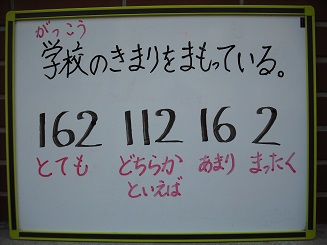 がっこう
学校のきまりをまもっている。
162 112 16 2
とても どちらか あまり まったく
といえば